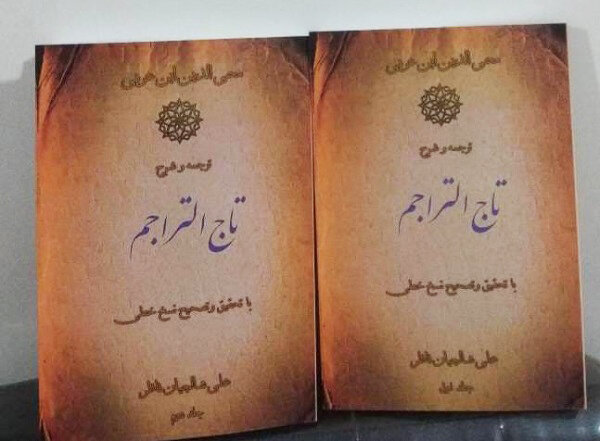 محی الدین ابن عربی
ترجمه و شرح
تاج التراجم
با تحقیق و تصحیح نسخ خطی
علی شالچیان ناظر
جلد اول
محی الدین ابن عربی
ترجمه و شرح
تاج التراجم
با تحقیق و تصحیح نسخ خطی
علی شالچیان ناظر
جلد دوم